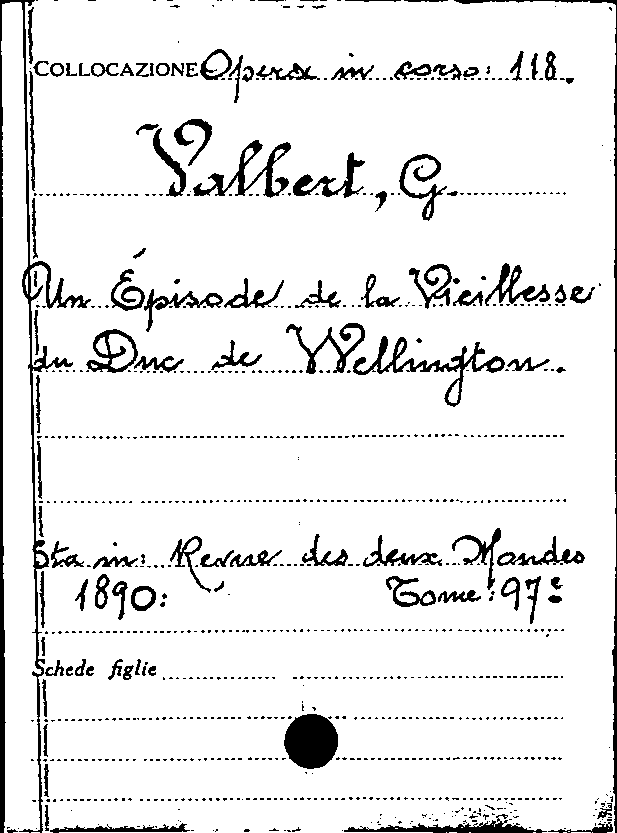 COLLOCAZIONE Opera in corso: 118.
Valbert, G.
Un Épisode de la Vieillesse
du Duc de Wellington.
Sta in: Revue des deux Mondes
1890: Tome: 97e
Schede figlie